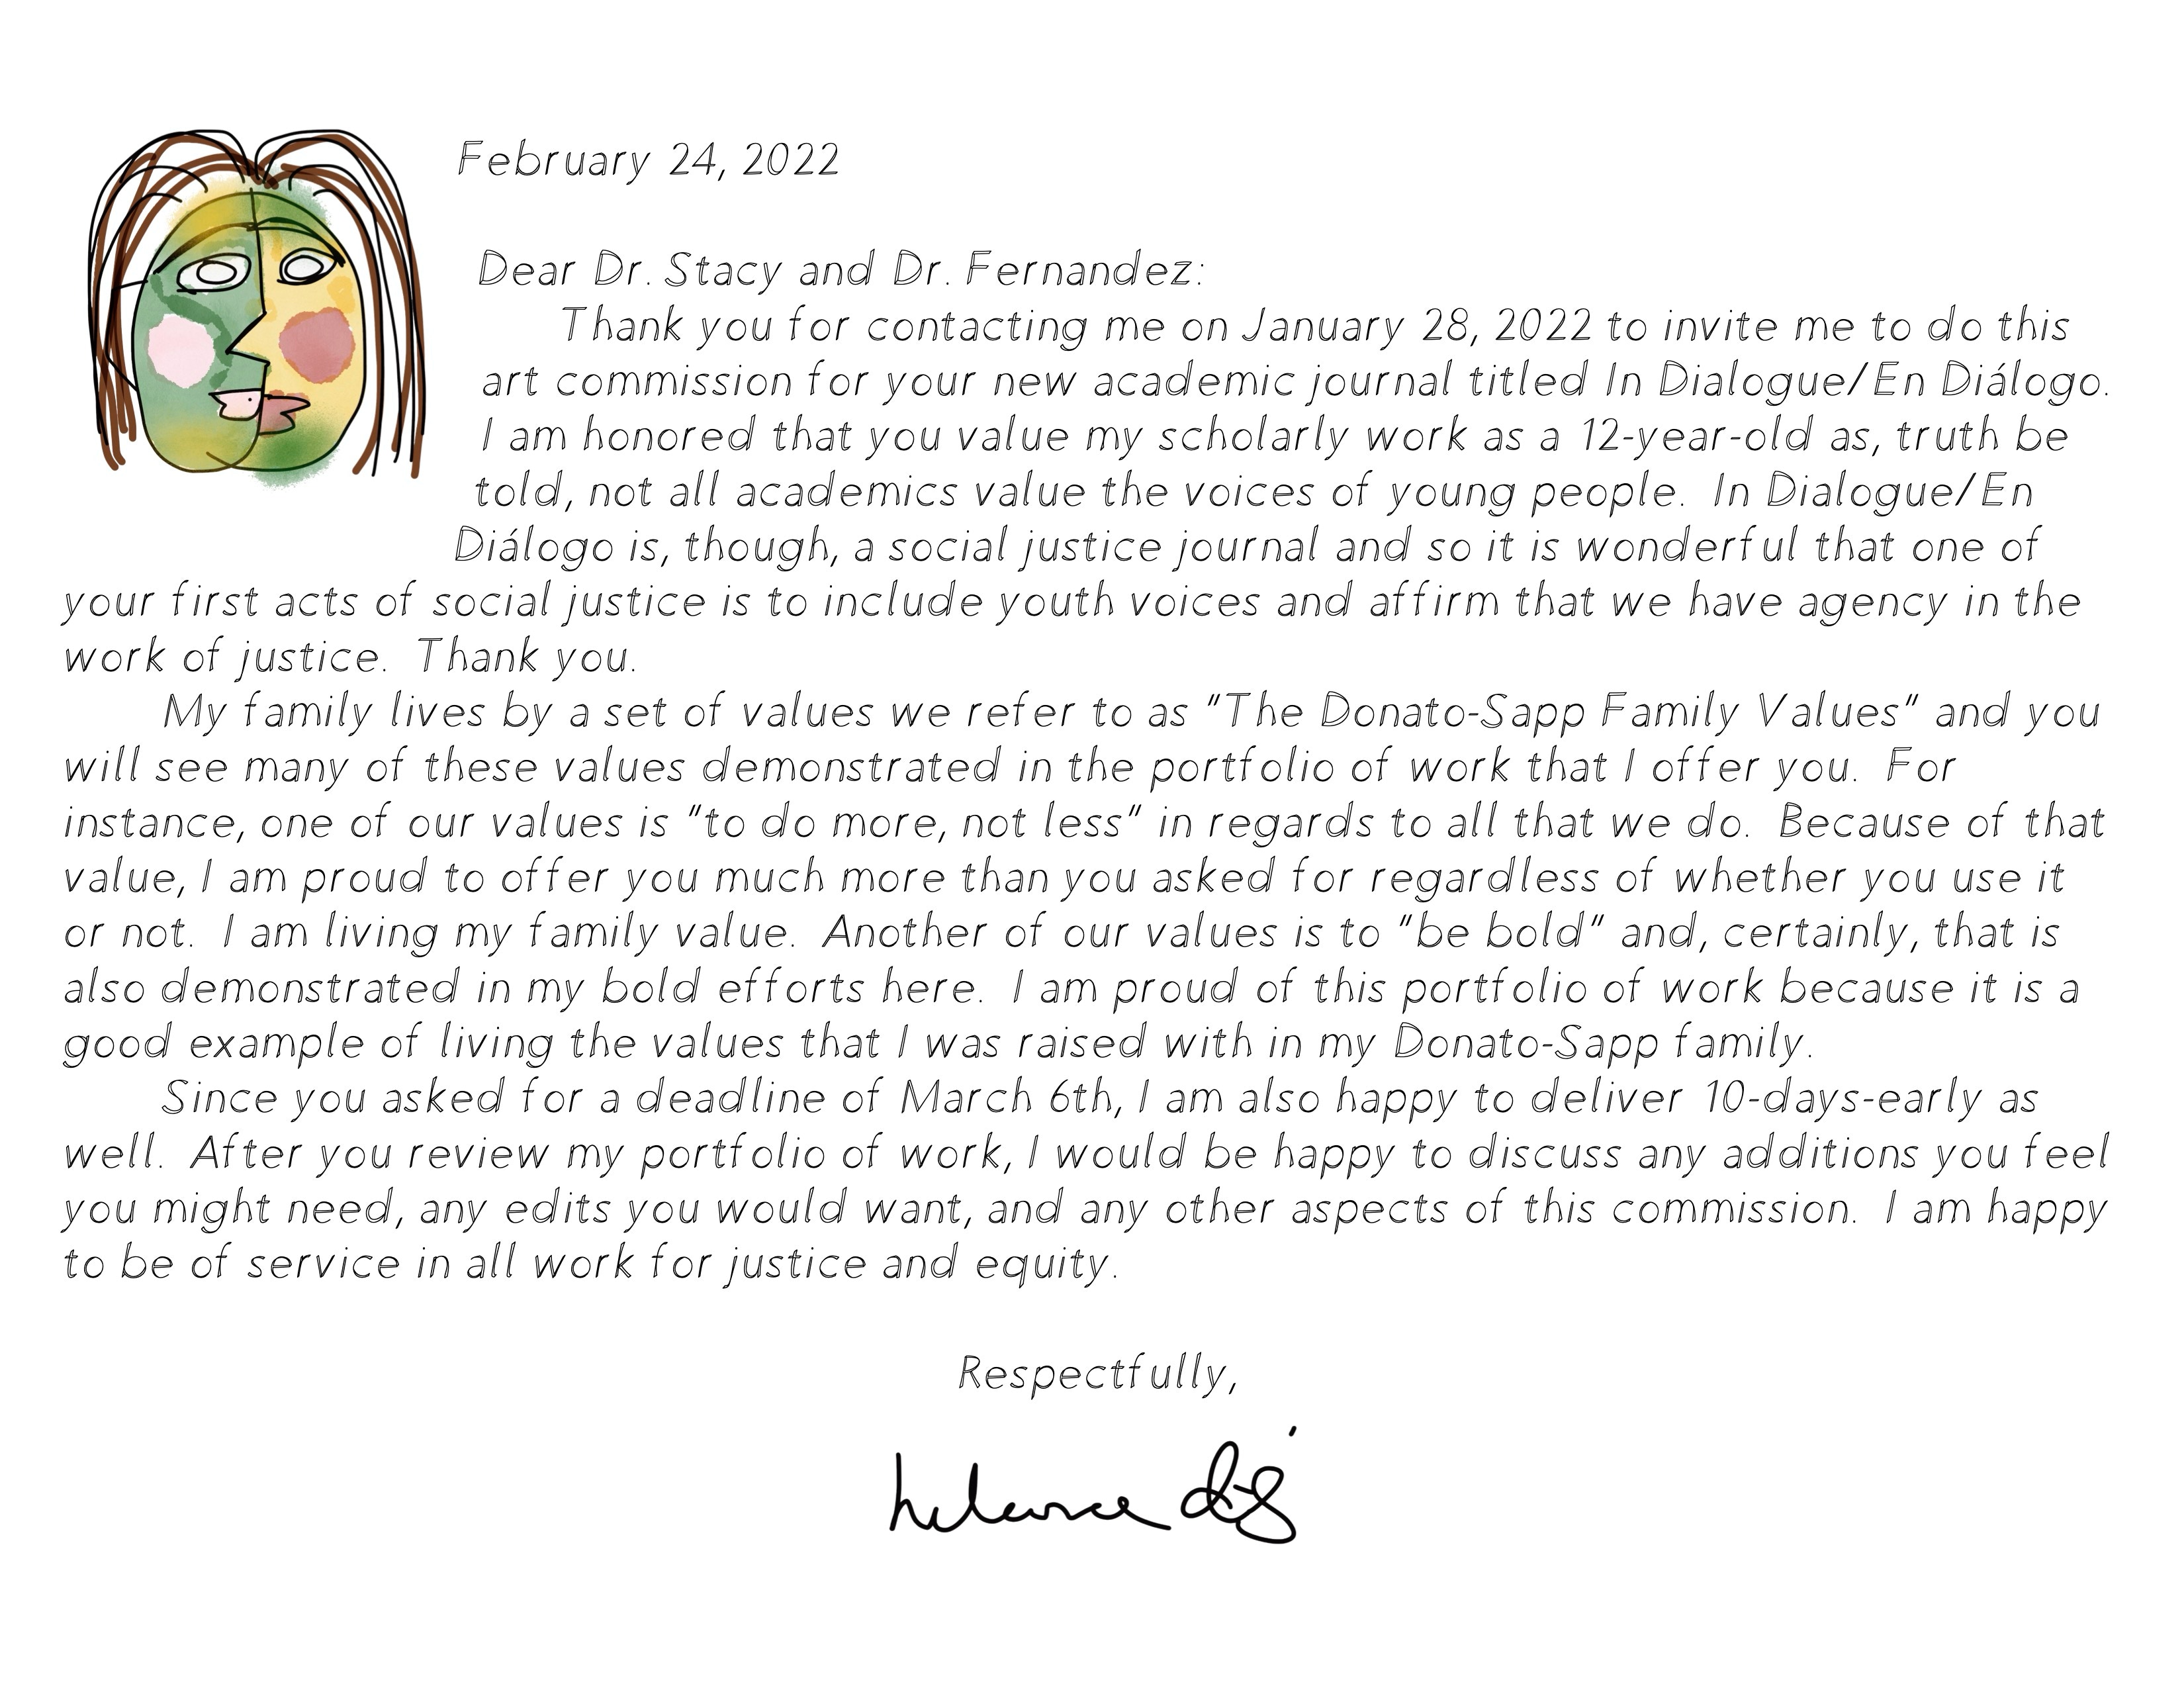 February 24, 2022
Dear Dr. Stacy and Dr. Fernandez:
Thank you for contacting me on January 28, 2022 to invite me to do this
art commission for your new academic journal titled In Dialogue/En Diálogo.
I am honored that you value my scholarly work as a 12-year-old as, truth be
told, not all academics value the voices of young people. In Dialogue/En
Diálogo is, though, a social justice journal and so it is wonderful that one of
your first acts of social justice is to include youth voices and affirm that we have agency in the
work of justice. Thank you.
My family lives by a set of values we refer to as "The Donato-Sapp Family Values" and you
will see many of these values demonstrated in the portfolio of work that I offer you. For
instance, one of our values is "to do more, not less" in regards to all that we do. Because of that
value, I am proud to offer you much more than you asked for regardless of whether you use it
or not. I am living my family value. Another of our values is to "be bold" and, certainly, that is
also demonstrated in my bold efforts here. I am proud of this portfolio of work because it is a
good example of living the values that I was raised with in my Donato-Sapp family.
Since you asked for a deadline of March 6th, I am also happy to deliver 10-days-early as
well. After you review my portfolio of work, I would be happy to discuss any additions you feel
you might need, any edits you would want, and any other aspects of this commission. I am happy
to be of service in all work for justice and equity.
Respectfully,